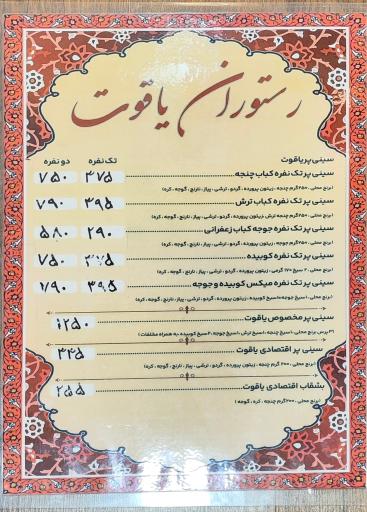 رستوران یاقوت
سینی پر یاقوت
تک نفره دو نفره
سینی پر تک نفره کباب چنجه ۳۷۵ ۷۵۰
(برنج محلی، ۲۵۰گرم چنجه، زیتون پرورده، گردو، ترشی، پیاز، نارنج، گوجه، کره)
سینی پر تک نفره کباب ترش ۳۹۵ ۷۹۰
(برنج محلی، ۲۵۰گرم چنجه ترش، زیتون پرورده، گردو، ترشی، پیاز، نارنج، گوجه، کره)
سینی پر تک نفره جوجه کباب زعفرانی ۲۹۰ ۵۸۰
(برنج محلی، ۲۵۰گرم جوجه، زیتون پرورده، گردو، ترشی، پیاز، نارنج، گوجه، کره)
سینی پر تک نفره کوبیده ۷۵۰
(برنج محلی، ۲سیخ ۱۷۰ گرمی، زیتون پرورده، گردو، ترشی، پیاز، نارنج، گوجه، کره)
سینی پر تک نفره میکس کوبیده و جوجه ۳۹۵ ۷۹۰
(برنج محلی، ۱سیخ جوجه، ۱سیخ کوبیده، زیتون پرورده، گردو، ترشی، پیاز، نارنج، گوجه، کره)
سینی پر مخصوص یاقوت ۱۲۵۰
(۳پرس برنج محلی، ۱سیخ چنجه، ۱سیخ ترش، ۱سیخ جوجه، ۲سیخ کوبیده، به همراه مخلفات)
سینی پر اقتصادی یاقوت ۳۴۵
(برنج محلی، ۲۰۰ گرم چنجه، زیتون پرورده، گردو، ترشی، پیاز، نارنج، گوجه، کره)
بشقاب اقتصادی یاقوت ۲۵۵
(برنج محلی، ۲۰۰گرم چنجه، کره، گوجه)